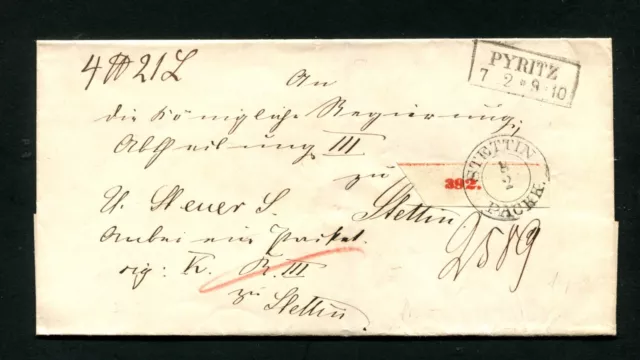 4 ℔ 21 L
PYRITZ
7 2 * 9-10
An
die Königliche Regierung,
Abtheilung III
zu
Stettin
392.
STETTIN
2
PACKK.
H. Steuer S.
Anbei ein Packet.
sig: K. R. III
zu Stettin
2589